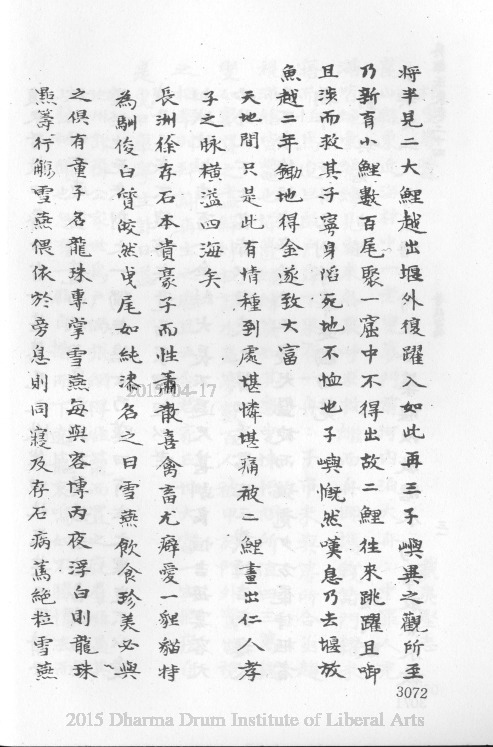 將半見二大鯉越出堰外復躍入如此再三子嶼異之觀所至
乃新育小鯉數百尾聚一窟中不得出故二鯉往來跳躍且啣
且涉而救其子寧身陷死地不恤也子嶼慨然嘆息乃去堰放
魚越二年鋤地得金遂致大富
天地間只是此有情種到處堪憐堪痛被二鯉畫出仁人孝
子之脉橫溢四海矣
長洲徐存石本貴豪子而性蕭散喜禽畜尤癖愛一貍貓特
為馴俊白質皎然戌尾如純漆名之曰雪燕飲食珍美必與
之俱有童子名龍珠專掌雪燕每與客博丙夜浮白則龍珠
點籌行觴雪燕偎依於旁息則同寢及存石病篤絕粒雪燕
3072
2015-04-17
2015 Dharma Drum Institute of Liberal Arts